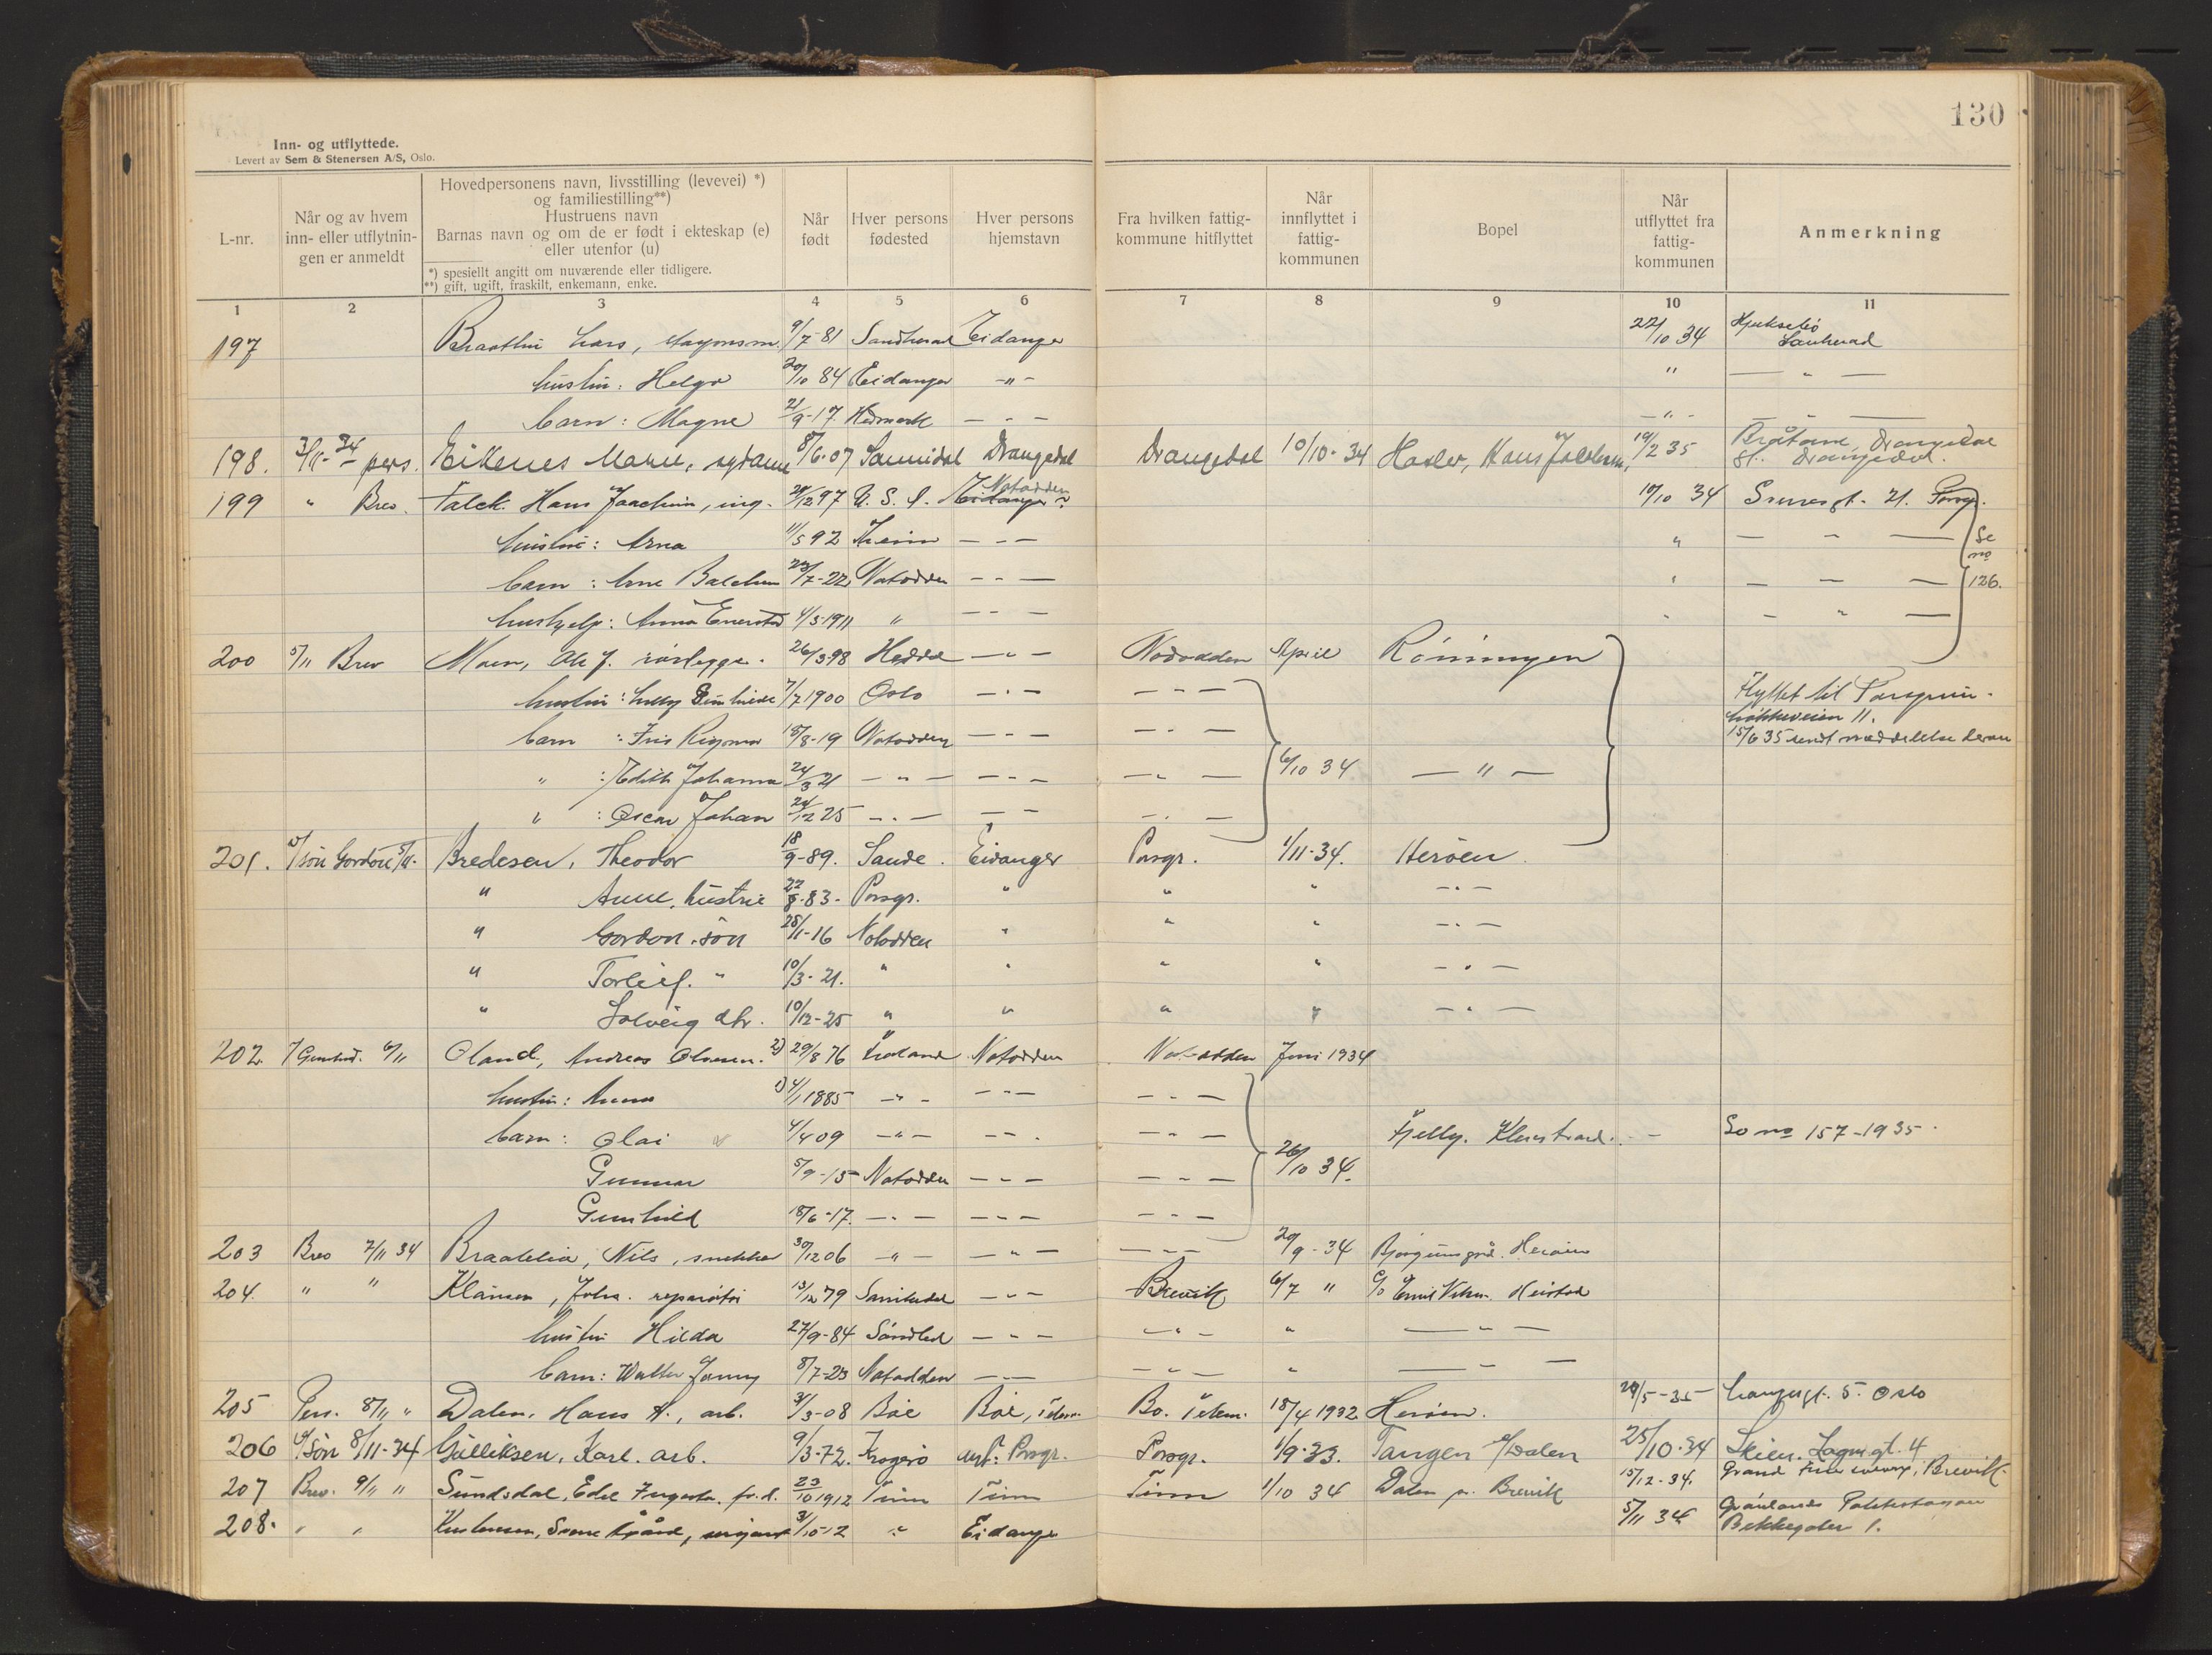 130
Inn- og utflyttede.
Levert av Sem & Stenersen A/S, Oslo.
L-nr.
Når og av hvem inn- eller utflytnin-gen er anmeldt
Hovedpersonens navn, livsstilling (levevei) *)
og familiestilling**)
Hustruens navn
Barnas navn og om de er født i ekteskap (e)
eller utenfor (u)
*) spesiellt angitt om nuværende eller tidligere.
**) gift, ugift, fraskilt, enkemann, enke.
Når født
Hver persons fødested
Hver persons hjemstavn
Fra hvilken fattig-kommune hitflyttet
Når innflyttet i fattig-kommunen
Bopel
Når utflyttet fra fattig-kommunen
Anmerkning
1 2 3 4 5 6 7 8 9 10 11
197 Lars, 9/7-81 Eidanger 22/10 34
hustru: Helga 20/10 84 Eidanger -"- " — " —
barn: Magne 21/9-17 Hedmark — - — —"- —
198. 3/11-34 pers. 8/6-07 Sannidal Drangedal Drangedal 10/10-34 19/2 35 Drangedal
199 " Brev. Falck Hans Joachim, ing. 29/12 97 U.S.A. Eidanger Notodden 10/10 34 21. Porsgr.
hustru: Arna 11/5 92 — - — " — " — Se
barn: Arne 23/7-22 Notodden — - — " — - — no
hushjelp: Anna 4/3-1911 " — - — " — " — 126.
200 5/11 Brev Moen, Ole J. rørlegger. 26/3 98 Hedda — " — Notodden April Rønningen
hustru: 7/7 1900 Oslo — - — — - — Flyttet til Porsgrunn.
barn: Rigmor 18/8-19 Notodden — - — — - — 11.
" : Edith Johanna 24/3 21 — " — — - — — - — 6/10 34 — " — 15/6 35 sendt meddelelse derom
" : Oscar Johan 24/12 25 — - — — - — — - —
201. v/ søn Gordon 5/11. Bredesen, Theodor 18/9-89. Sande. Eidanger Porsgr. 1/11-34. Herøen
" Anne, hustru 22/8-83. Porsgr. " " " — " —
" Gordon, søn 28/11-16 Notodden " " " — " —
" Torleif. " 10/3-21. " " " " — " —
" Solveig dtr. 10/12-25 " " " " — " —
202. 6/11 Oland, Andreas Olausen. 2) 29/8 76 Notodden Notodden Juni 1934
hustru: Anna 1) 4/1 1885 — " — — - — — - —
barn: Olai 4/4 09 — " — — - — — - — Se no 157-1935.
Gunnar 5/9-15 Notodden — - — — - — 26/10 34.
Gunhild 18/6-17. — - — — - — — - —
203 Brev 7/11 34 Braatelia, Nils, snekker 30/12 06 — " — — " — — - — 29/9-34 Herøen
204. " " Johs. reparatør 13/12 79 — - — Brevik 6/7 " c/o Heistad
hustru Hilda 27/9-84 Søndled — - — — " — " — " —
barn: Walter 8/7-23 Notodden — - — — " — " — " —
205 Pers. 8/11 " Dalen, Hans A., arb. 31/3-08 Bøe Bøe, Telem. Bø. Telem. 18/4 1932. Herøen. 29/5-35 5. Oslo
206 v/ Søn 8/11-34 Gulliksen, Karl. arb. 9/3-72. Kragerø ant. Porsgr. Porsgr. 1/9-33. Tangen p/ Dalen 25/10-34 Skien. 4
207 Brev. 9/11 " Sundsdal, 23/10 1912 Tinn Tinn Tinn 1/10 34 Dalen pr. Brevik 15/12-34. Grand Brevik.
208. " " 3/10-12 " Eidanger 5/11 34 Grønlands
Bekkegaten 1.